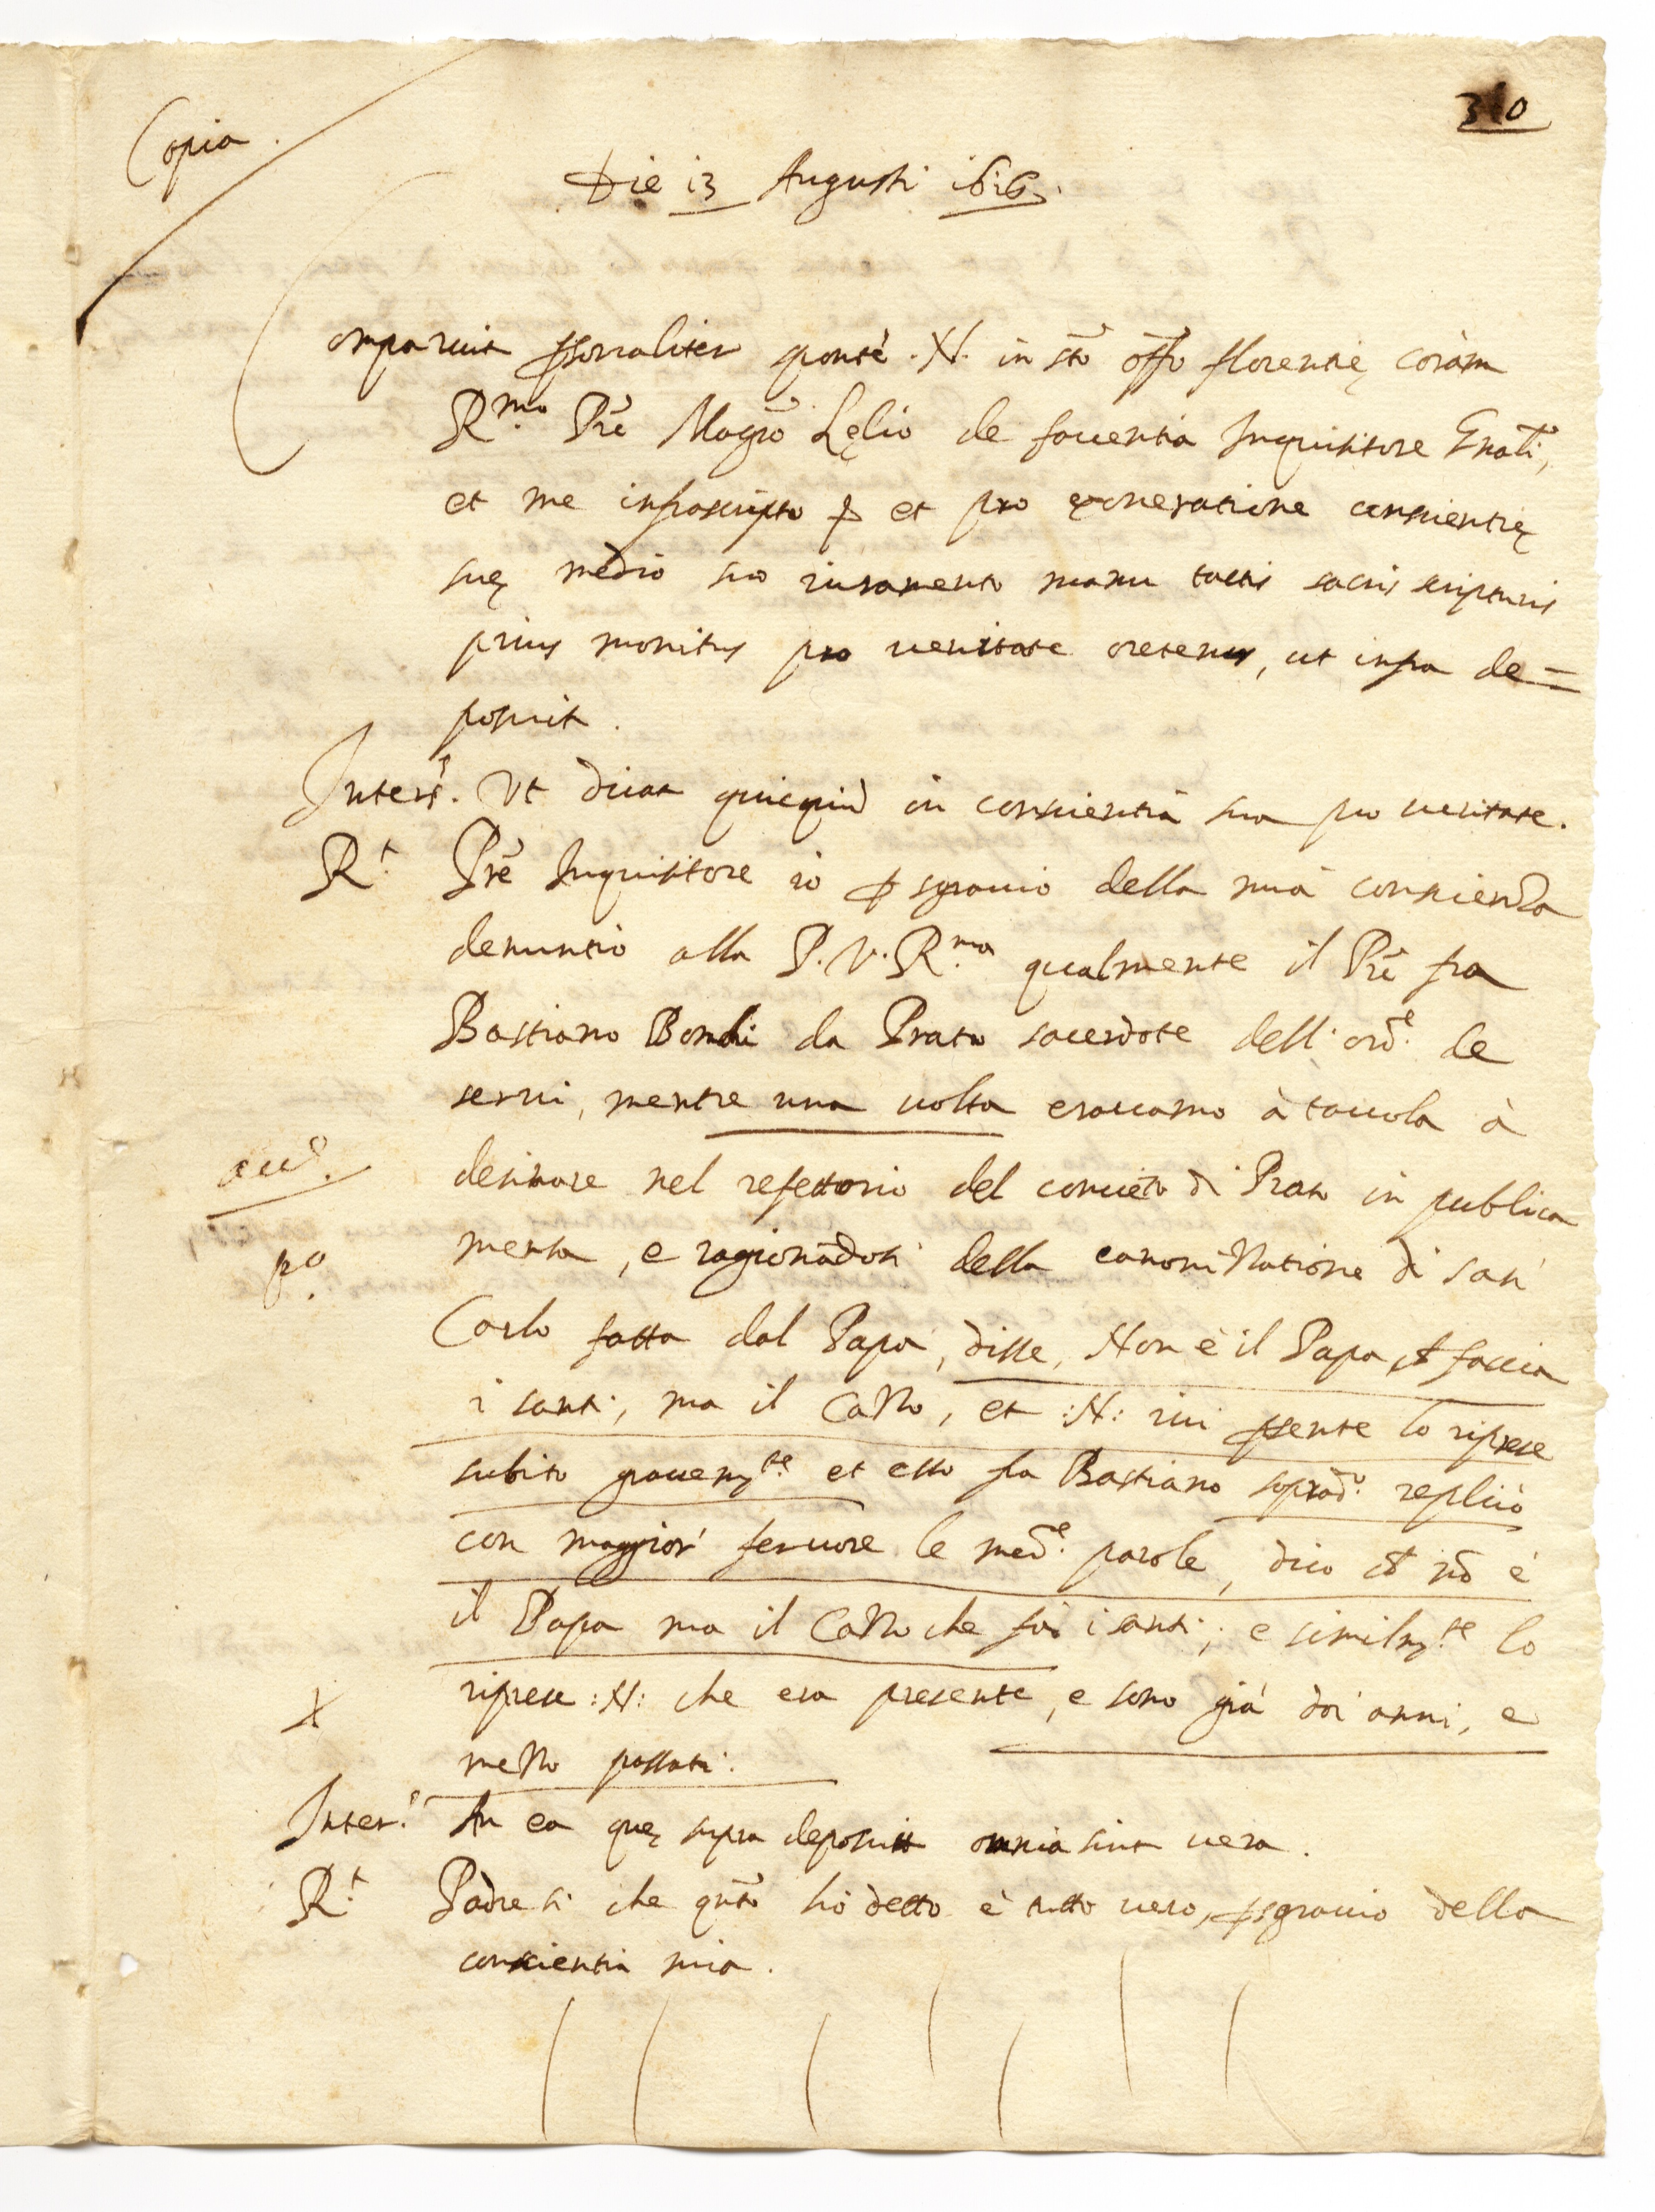 310
Copia.
Die 13 Augusti 1616.
Comparuit psonaliter sponte .N. in sto offo florentię coram
R.mo Pre Magro Lęlio de fauentia Inquisitore Gnali,
et me infrascripto p et pro exoneratione conscientię
suę medio suo iuramento manu tactis sacris scripturis
prius monitus pro ueritate oretenus, ut infra de=
posuit.
Inters. Ut dicat quicquid in conscientia sua pro ueritate.
R.t Pre Inquisitore io p sgrauio della mia conscienza
denuntio alla P.V.R.ma qualmente il Pre fra
Bastiano Bondi da Prato sacerdote dell' ord.e de
serui, mentre una uolta erauamo à tauola à
desinare nel refettorio del conueto di Prato in publica
mensa, e ragionadosi della canonizzatione di san
po.
Carlo fatta dal Papa, disse, Non è il Papa ch faccia
i santi, ma il Cazzo, et :N: iui psente lo riprese
subito grauem.te et esso fra Bastiano soprad.o replicò
con maggior feruore le med.e parole, dico ch nō è
il Papa ma il Cazzo che fa i santi; e similm.te lo
X
riprese :N: che era presente, e sono già doi anni, e
mezzo passati.
Inter.s An ea quę supra deposuit omnia sint uera.
R.t Padre si che qnto hò detto è tutto uero, p sgrauio della
conscientia mia.